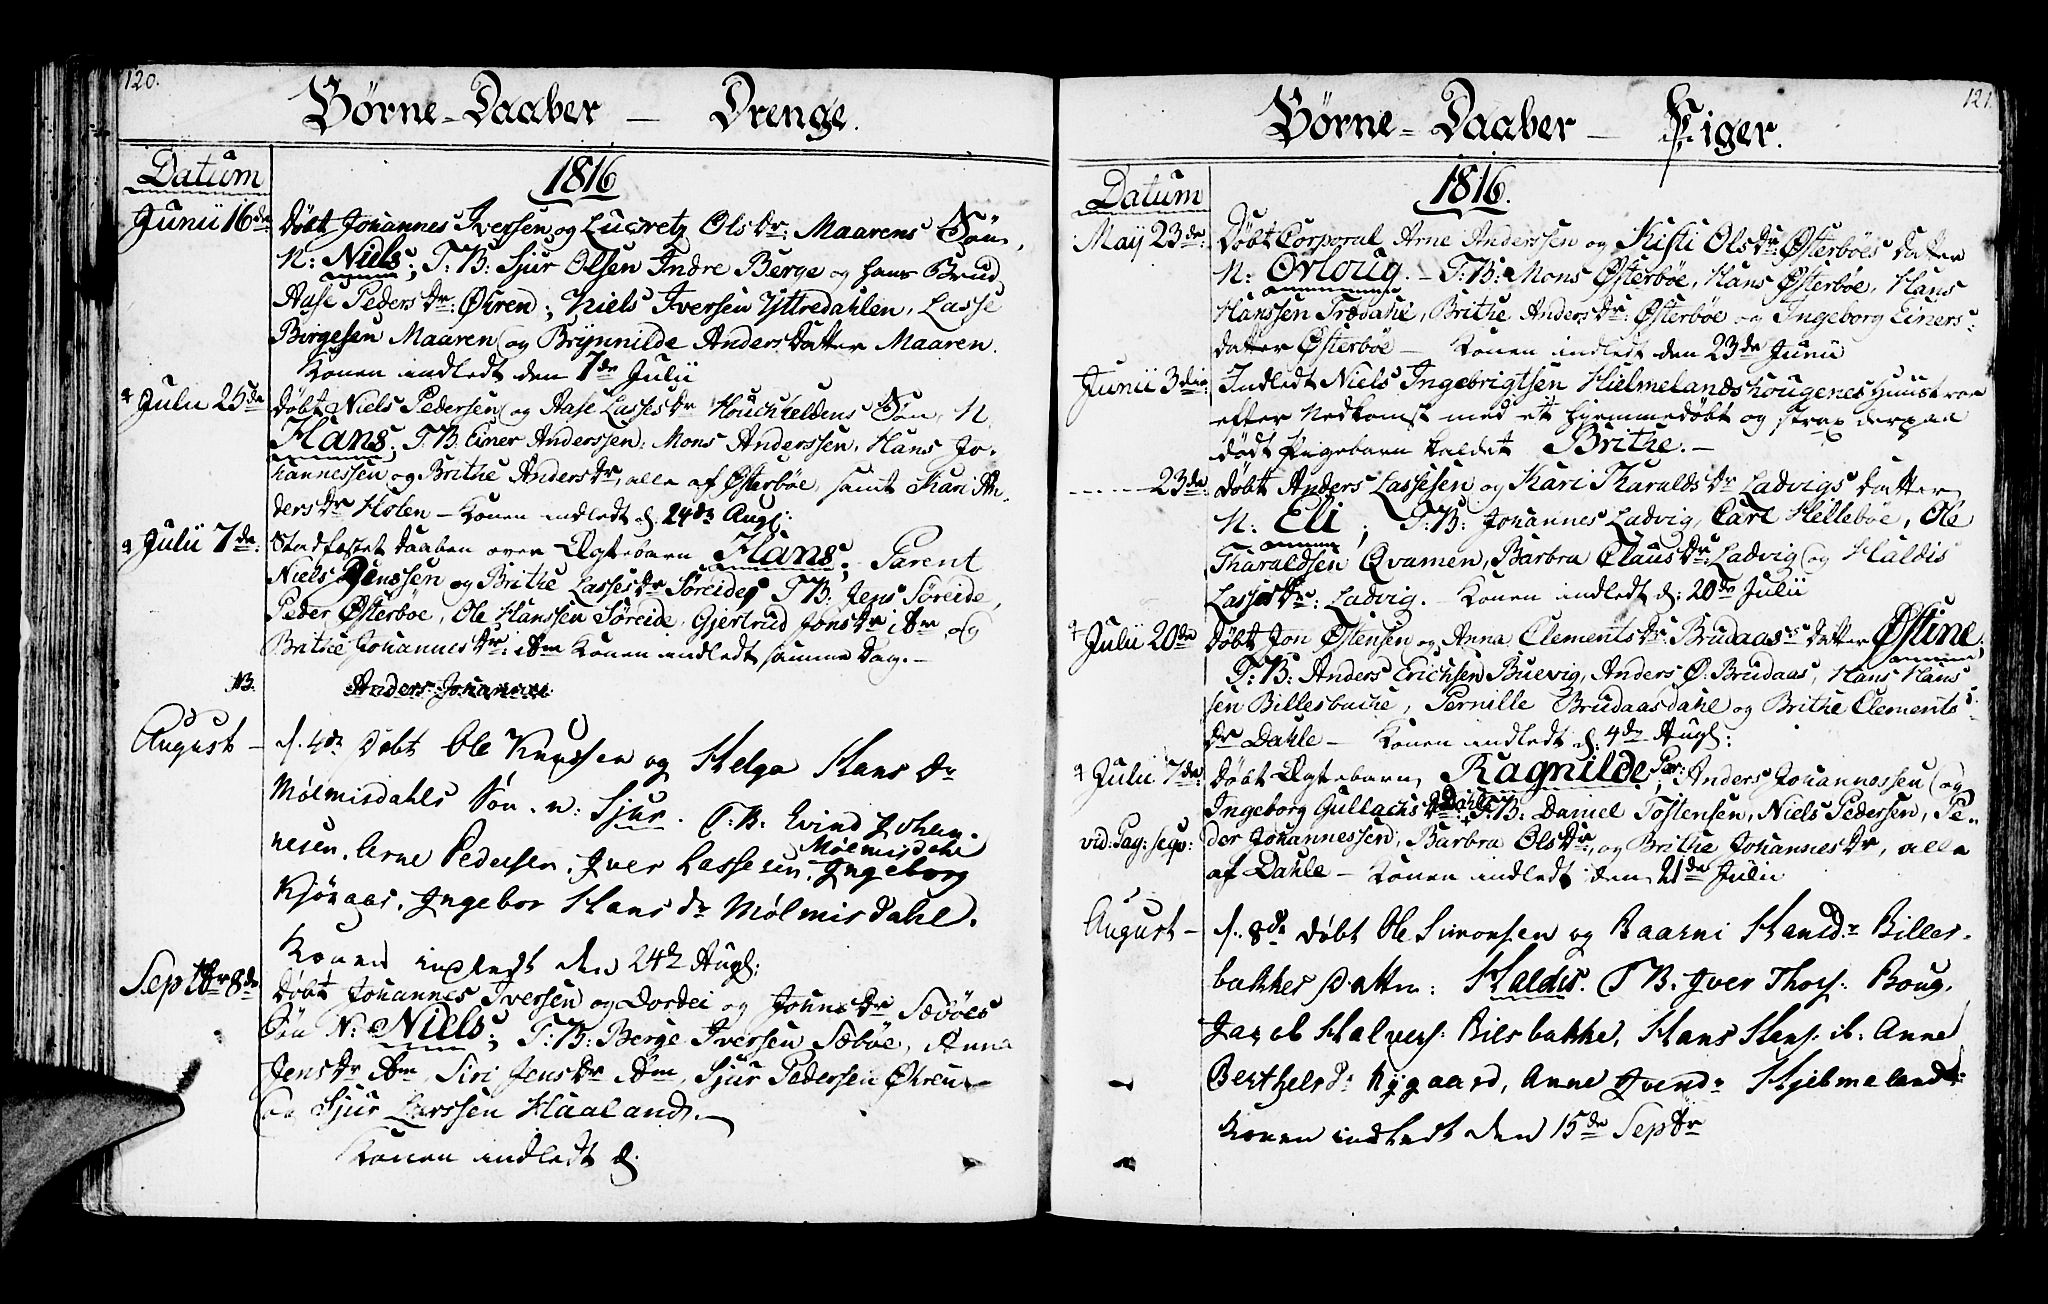 120.
Börne-Daaber — Drenge.
Datum
1816
Junii 16de
Döbt Johannes Iversen og Lucretz OlsDr: Maarens Sön,
N: Niels; T:B: Sjur Olsen Indre Berge og hans Brud
Aase PedersDr: Øhren; Niels Iversen Yttredahlen, Lasse
Börgesen Maaren og Brynnilde AndersDatter Maaren.
Konen indledt den 7de Julii
Julii 25de
Döbt Niels Pedersen og Aase LassesDr Houchheldens Sön, N.
Hans; T.B. Einer Anderssen, Mons Anderssen, Hans Jo-
hannessen og Brithe AndersDr, alle af Østerböe, samt Kari An-
dersDr Holen — Konen indledt d. 24de Augl:
Julii 7de:
Stadfæstet Daaben over Ægtebarn Hans; Parent
Niels Jenssen og Brithe LassesDr Söreide, T.B: Jens Söreide,
Peder Østerböe, Ole Hanssen Söreide, Gjertrud JonsDr ibm og
Brithe JohannesDr: ibm Konen indledt samme Dag. —
NB. Anders Johannes
August —
d. 4de Döbt Ole Knudsen og Helga Hans Dr
Mølmisdahls Søn. n: Sjur. T.B. Evind Johan-
nesen, Arne Pedersen, Iver Lassesen, Ingeborg Mølmisdahl
Kjöraas, Ingebor Hans dr Mølmisdahl.
Konen indledt den 24de Augl:
Septbr 8de
Döbt Johannes Iversen og Dordei og JohnsDr Sæböes
Sön N: Niels; T:B: Berge Iversen Sæböe, Anna
JensDr ibm, Siri JensDr ibm, Sjur Pedersen Øhren
og Sjur Larssen Haaland. —
Konen indledt d.
121.
Börne-Daaber — Piger.
Datum
1816.
Maÿ 23de:
Döbt Corporal Arne Anderssen og Kisti OlsDr Østerböes Datter
N: Orloug. — T:B: Mons Østerböe, Hans Østerböe, Hans
Hanssen Trædahl, Brithe AndersDr: Østerböe og Ingeborg Einers-
datter Østerböe — Konen indledt den 23de Junii
Junii 3die
Indledt Niels Ingebrigtsen Hielmelandskougenes Huustroe
efter Nedkomst med et hjemmedöbt og strax derpaa
dödt Pigebarn kaldet Brithe. —
23de:
Döbt Anders Lassesen og Kari TharaldsDr Ladvigs Datter,
N: Eli; T:B: Johannes Ladvig, Carl Hellebøe, Ole
Tharaldsen Qvamen, Barbra ClausDr: Ladvig og Haldis
LassesDr: Ladvig. — Konen indledt d: 20de Julii
Julii 20de
Döbt Jon Østensen og Anna ClementsDr: Brudaas Datter Østine,
T:B: Anders Erichsen Buevig, Anders Ø. Brudaas, Hans Hans
sen Billesbache, Pernille Brudaasdahl og Brithe Clements
Dr Dahle — Konen indledt d: 4de Augl:
Julii 7de
Döbt Ægtebarn Ragnilde, Par: Anders Johannessen og
Ingeborg GullachsDr Dahle T:B: Daniel Tostensen, Niels Pedersen, Pe-
vid: Pag: seqv:
der Johannessen, Barbra OlsDr:, og Brithe JohannesDr, alle
af Dahle — Konen indledt den 21de Julii
August —
d. 8de Döbt Ole Simonsen og Baarni Hansdr Billes-
bakkes Datter: Haldis. T.B. Iver Thors: Boug,
Jacob Halvers: Bilsbakke, Hans Hans: ib. Anne
Berthels Dr Nygaard, Anne Ivendr Hjelmeland:
Konen indledt den 15de Septbr